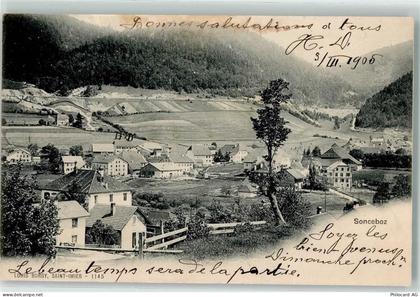 Bonnes salutations à tous
H. D.
3/III. 1906
Sonceboz
Soyez les
bien venus,
Dimanche proch.
Le beau temps sera de la partie.
LOUIS BURGY, SAINT-IMIER - 1145
www.ansichtskartenversand.com